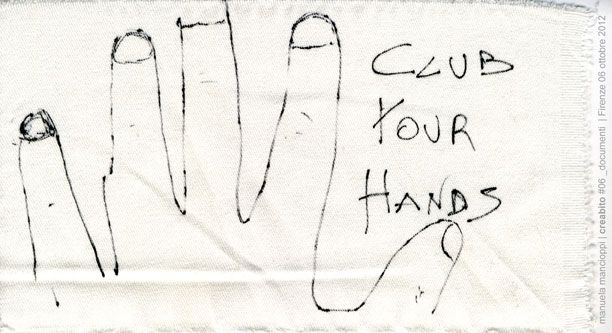 CLUB
YOUR
HANDS
manuela mancioppi | creabito #06 _documenti | Firenze 06 ottobre 2012